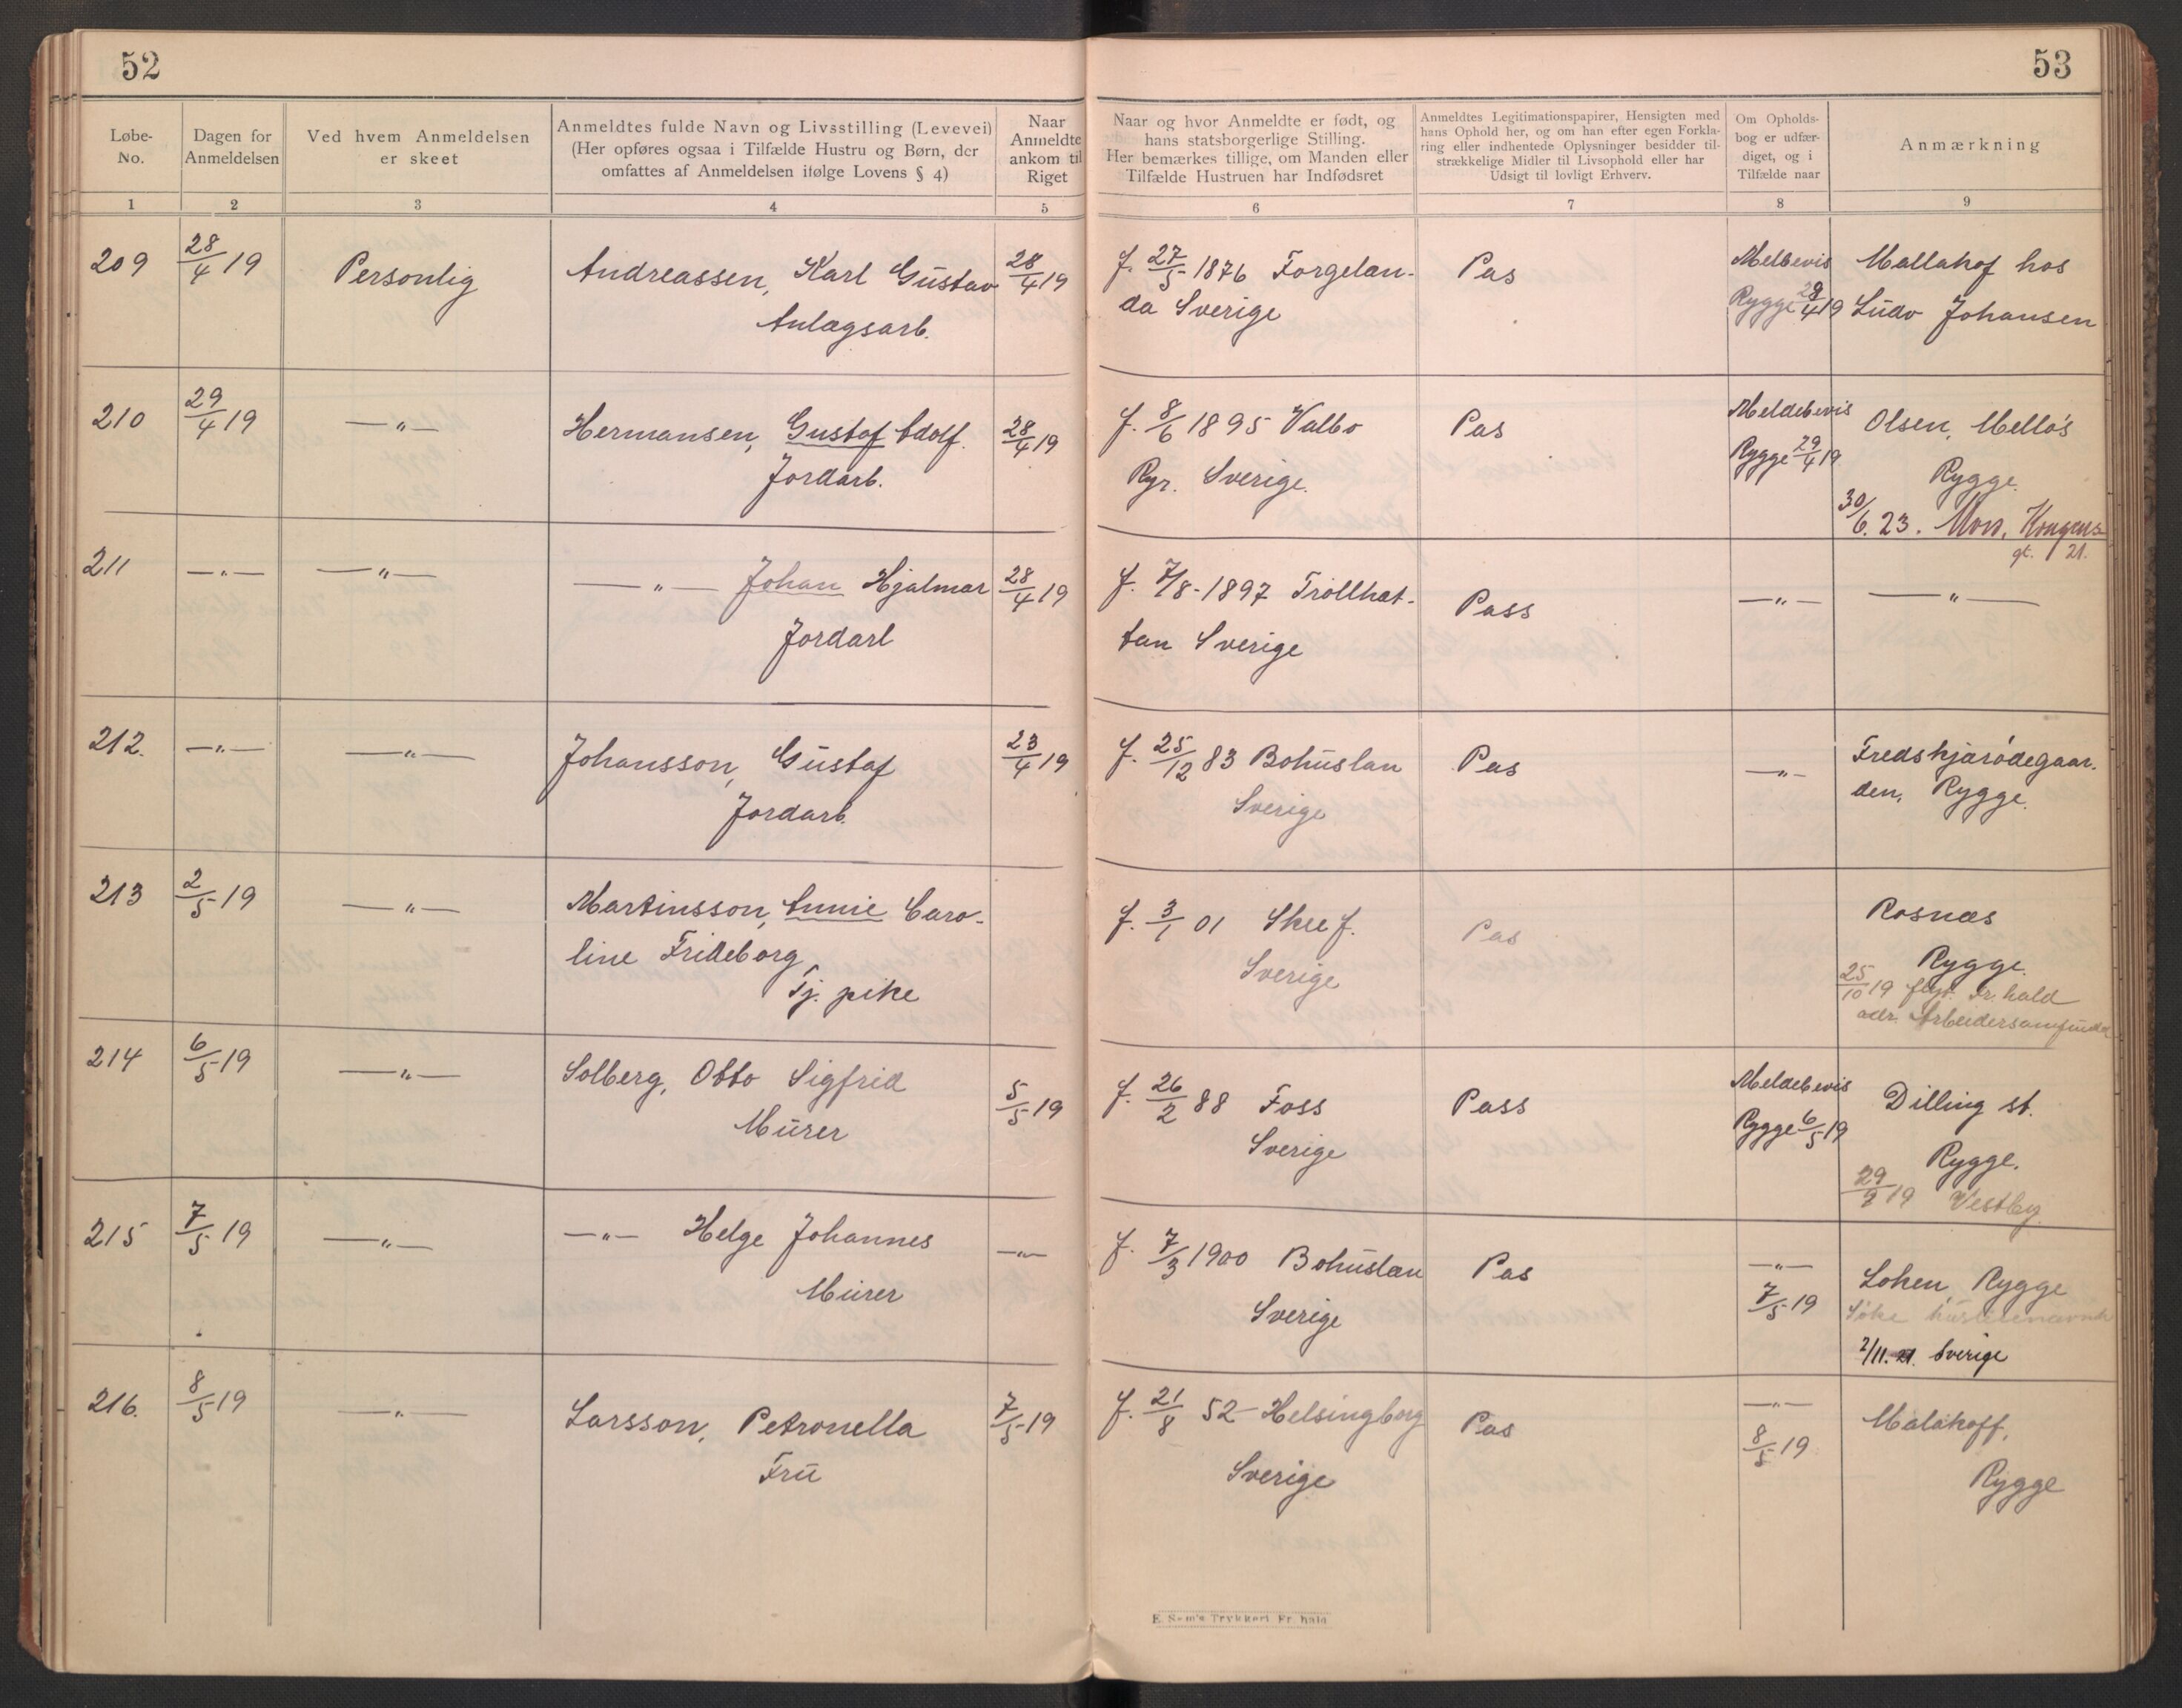 52
53
Løbe-
No.
Dagen for
Anmeldelsen
Ved hvem Anmeldelsen
er skeet
Anmeldtes fulde Navn og Livsstilling (Levevei)
(Her opføres ogsaa i Tilfælde Hustru og Børn, der
omfattes af Anmeldelsen ifølge Lovens § 4)
Naar
Anmeldte
ankom til
Riget
Naar og hvor Anmeldte er født, og
hans statsborgerlige Stilling.
Her bemærkes tillige, om Manden eller
Tilfælde Hustruen har Indfødsret
Anmeldtes Legitimationspapirer, Hensigten med
hans Ophold her, og om han efter egen Forkla-
ring eller indhentede Oplysninger besidder til-
strækkelige Midler til Livsophold eller har
Udsigt til lovligt Erhverv.
Om Opholds-
bog er udfær-
diget, og i
Tilfælde naar
Anmærkning
1 2 3 4 5 6 7 8 9
209 28/4 19 Personlig Andreassen, Karl Gustav 28/4 19 f. 27/5 1876 Forgelan- Pas Melbevis Mallakof hos
Anlægsarb. da Sverige Rygge 29/4 19 Ludv Johansen
210 29/4 19 —„— Hermansen, Gustaf Adolf. 28/4 19 f. 8/6 1895 Valbo Pas Meldebevis Olsen, Melløs
Jordarb. Ryr. Sverige. Rygge 29/4 19 Rygge.
30/6. 23. Moss, Kongens
gt. 21.
211 —„— —„— —„— Johan Hjalmar 28/4 19 f. 7/8-1897 Trollhat- Pass —„— —„—
Jordarb tan Sverige
212. —„— —„— Johansson, Gustaf 23/4 19 f. 25/12 83 Bohuslan Pas —„— Fredskjærødegaar-
Jordarb. Sverige den, Rygge.
213 2/5 19 —„— Martinsson, Annie Caro- f. 3/1 01 Skee f. Pas Rosnæs
line Frideborg Sverige Rygge.
Tj. pike 25/10 19 flyt. Fr.hald
adr. Arbeidersamfundet
214 6/5 19 —„— Solberg, Otto Sigfrid 5/5 19 f. 26/2 88 Foss Pass Meldebevis Dilling st.
Murer Sverige Rygge 6/5 19 Rygge.
29/7 19 Vestby
215 7/5 19 —„— —„— Helge Johannes —„— f. 7/3 1900 Bohuslæn Pas —„— Løken, Rygge
Murer Sverige 7/5 19
2/11. 21. Sverige
216. 8/5 19 —„— Larsson, Petronella 7/5 19 f. 21/8 52 Helsingborg Pas —„— Malakoff,
Fru Sverige 8/5 19 Rygge
E. Sem's Trykkeri Fr.hald